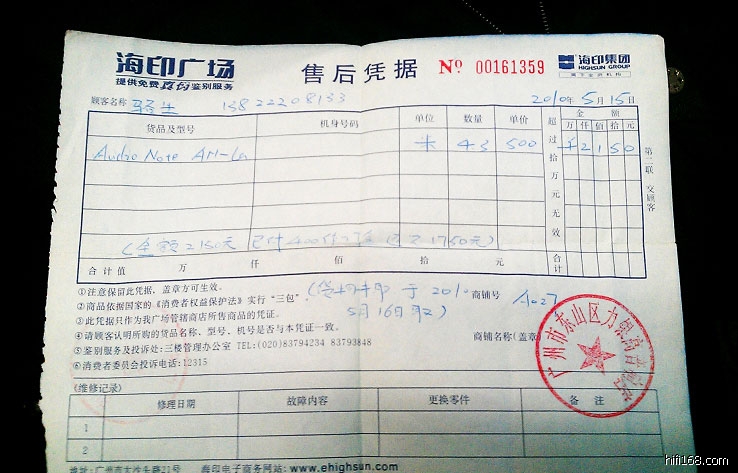 海印广场
提供免费真伪鉴别服务
售后凭据
№ 00161359
海印集团
HIGHSUN GROUP
属下金润机构
顾客名称 骆生 13822208133 2010年5月15日
货品及型号 机身号码 单位 数量 单价 超过拾万元无效 金额
万 仟 佰 拾 元
Audio Note AN-La 米 4.3 500 ¥ 2 1 5 0
(金额2150元 已付400 1750元)
合计值 万 仟 佰 拾 元 合计
第二联 交顾客
①注意保留此凭据,盖章方可生效。
②商品依据国家的《消费者权益保护法》实行“三包”。
③此凭据只作为我广场管辖商店所售商品的凭证。
④请顾客认明所购的货品名称、型号、机号是否与本凭证一致。
⑤鉴别服务及投诉处:三楼管理办公室 TEL:(020)83794234 83793848
⑥消费者委员会投诉电话:12315
于2010 5月16日取)
商铺号 A027
商铺名称(盖章)
广州市东山区力
(维修记录)
修理日期 故障内容 更换零件 备注
1
2
地址:广州市大沙头路21号 海印电子商务网站:www.ehighsun.com
hifi168.com